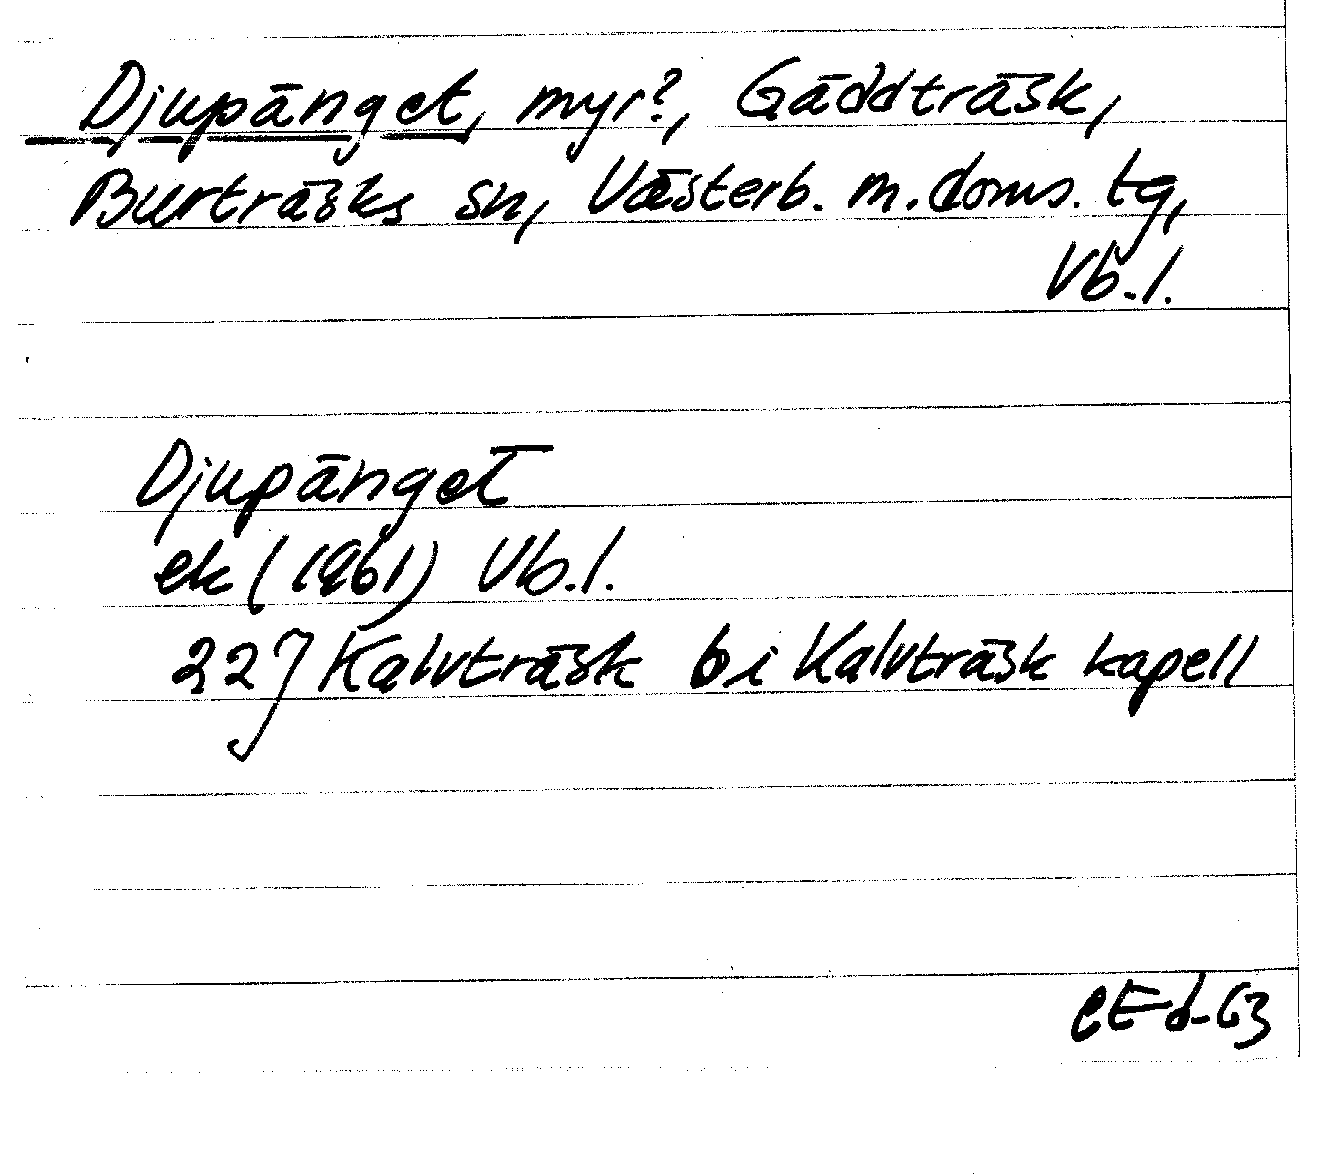 Djupänget, myr?, Gäddträsk,
Burträsks sn, Västerb. m. doms. tg,
Vb. l.
Djupänget
ek (1961) Vb. l.
227 Kalvträsk bi Kalvträsk kapell
CEd-63